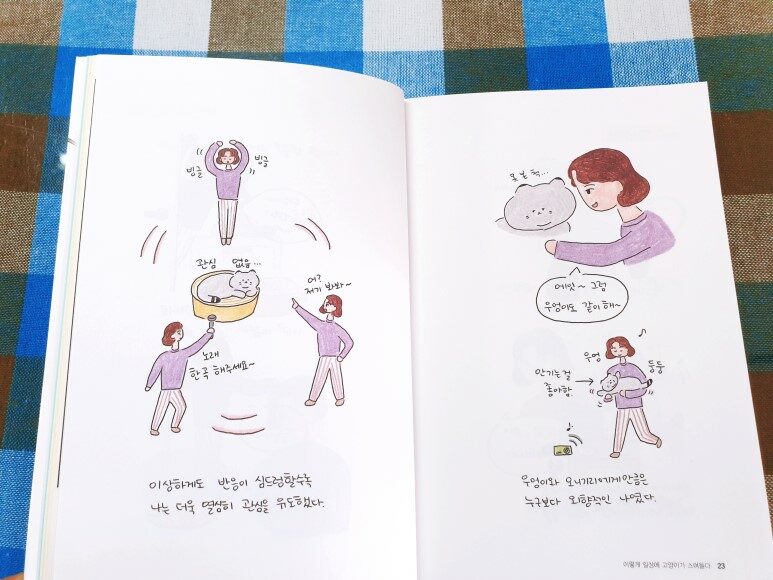 빙글
빙글
관심 없음...
어?
저기 봐봐~
노래
한곡 해주세요~
이상하게도 반응이 심드렁할수록
나는 더욱 열심히 관심을 유도했다.
못본 척...
에잇~ 그럼
우엉이도 같이 해~
우엉
둥둥
안기는걸
좋아함
우엉이와 오니기리에게만큼은
누구보다 외향적인 나였다.
이렇게 일상에 고양이가 스며들다 23